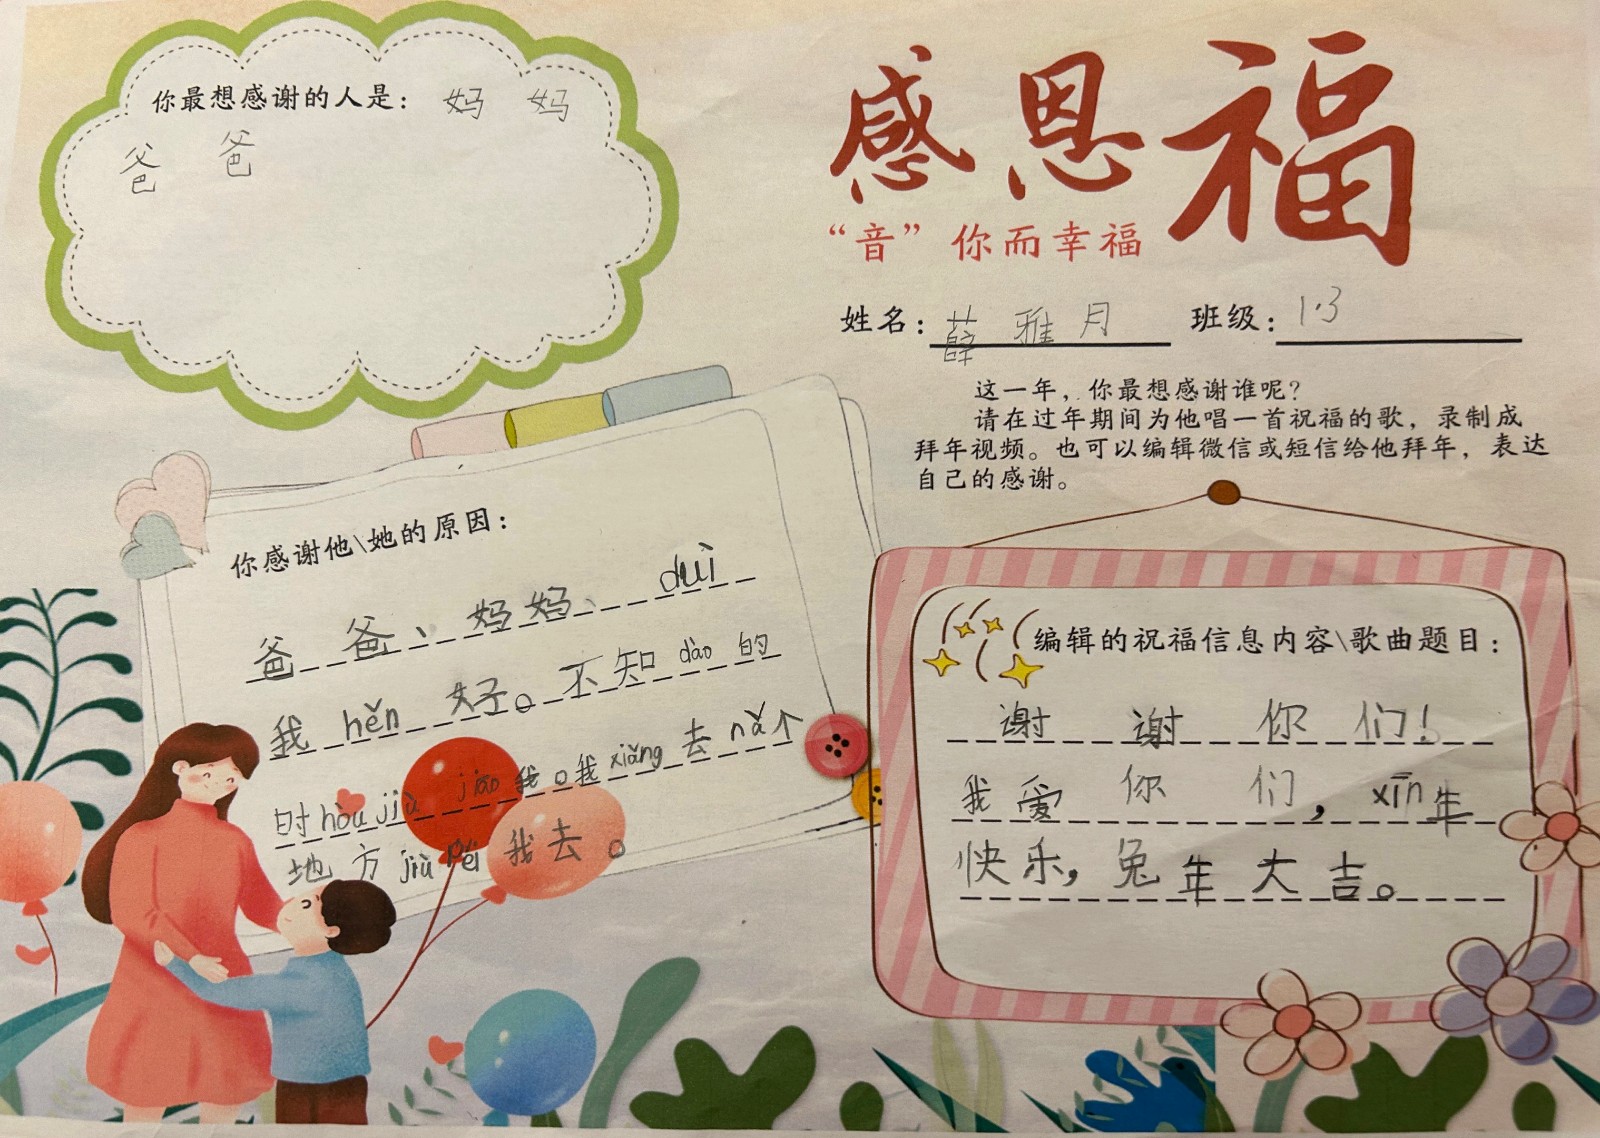 你最想感谢的人是：妈 妈
爸 爸
感恩福
“音”你而幸福
姓名：薛雅月 班级：1.3
这一年，你最想感谢谁呢？
请在过年期间为他唱一首祝福的歌，录制成
拜年视频。也可以编辑微信或短信给他拜年，表达
自己的感谢。
你感谢他\她的原因：
爸爸、妈妈、duì
我hěn好。不知dào的
时hòu jiù jiāo我。我xiǎng去nǎ个
地方jiù péi我去。
编辑的祝福信息内容\歌曲题目：
谢谢你们！
我爱你们，xīn年
快乐，兔年大吉。